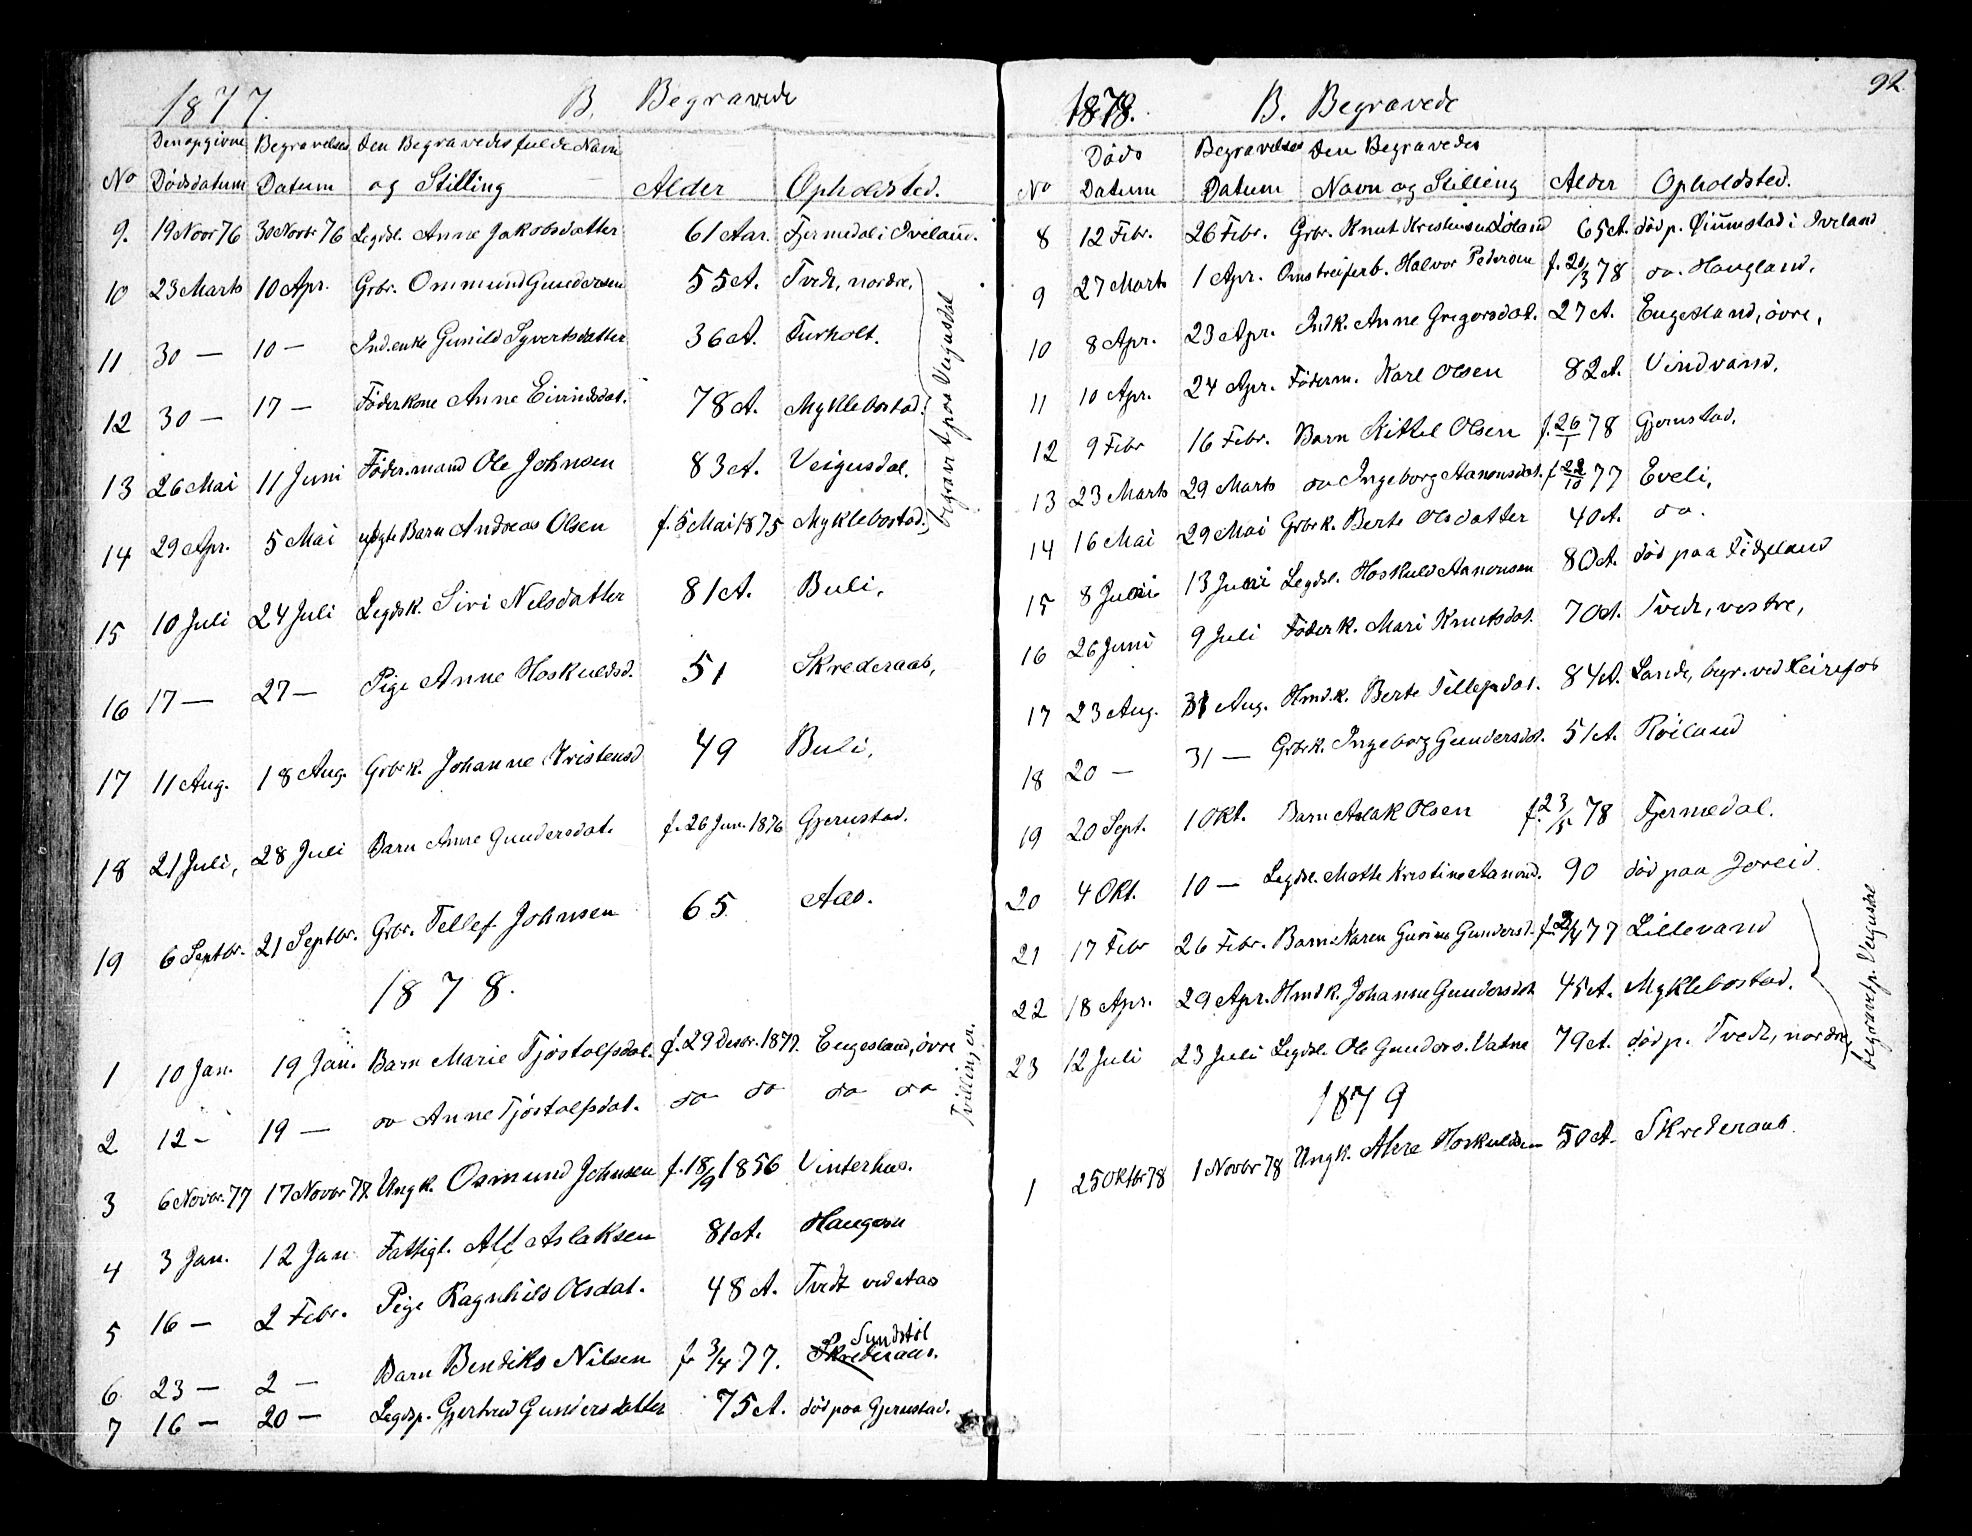 1877. B. Begravede
No Den opgivne Dødsdatum Begravelses Datum Den Begravedes fulde Navn og Stilling Alder Opholdsted.
9. 19 Novr 76 30 Novbr 76 Legdsl. Anne Jakobsdatter 61 Aar. Fjermedal i Iveland.
10 23 Marts 10 Apr. Grbr. Ommund Gundersen 55 A. Tvedt, nordre,
11 30 — 10 — Ind.enke Gunild Syvertsdatter 36 A. Furholt.
12 30 — 17 — Föderkone Anne Eivindsdat. 78 A. Myklebostad.
13 26 Mai 11 Juni Föder.mand Ole Johnsen 83 A. Veigusdal.
14 29 Apr. 5 Mai uægte Barn Andreas Olsen f. 5 Mai 1875 Myklebostad.
begravet paa Veigusdal
15 10 Juli 24 Juli Legdsk. Siri Nelsdatter 81 A. Buli,
16 17 — 27 — Pige Anne Hoskuldsd. 51 Skrederaas,
17 11 Aug. 18 Aug. Grbrk. Johanne Kristensd 49 Buli,
18 21 Juli, 28 Juli Barn Anne Gundersdat. f. 26 Jun. 1876 Gjerustad.
19 6 Septbr. 21 Septbr. Grbr. Tellef Johnsen 65 Aas.
1878.
1 10 Jan. 19 Jan. Barn Marie Tjöstolfsdat. f. 29 Desbr. 1877. Eugesland, övre
2 12 — 19 — do Anne Tjöstolfsdat. do do do do
Tvillinger.
3 6 Novbr. 77 17 Novbr 77. Ungk. Osmund Johnsen f. 18/9 1856 Vinterhus.
4 3 Jan. 12 Jan Fattigl. Alf Aslaksen 81 A. Haugen
5 16 — 2 Febr. Pige Ragnhild Olsdat. 48 A. Tvedt ved Aas
6 23 — 2 — Barn Bendiks Nilsen f. 3/4 77. Skrederaas. Sundstöl
7 16 — 20 — Legdsp. Gjertrud Gundersdatter 75 A. död paa Gjerustad.
92.
1878. B. Begravede
No Döds Datum Begravelses Datum Den Begravedes Navn og Stilling Alder Opholdsted.
8 12 Febr. 26 Febr. Grbr. Knut Kristensen Röland 65 A. död p. i Iveland
9 27 Marts 1 Apr. Omstreiferb. Halvor Pedersen f. 20/3 78 do. Haugland,
10 8 Apr. 23 Apr. Indk. Anne Gregorsdat. 27 A. Eugesland, övre,
11 10 Apr. 24 Apr. Föderm. Karl Olsen 82 A. Vindvand,
12 9 Febr 16 Febr. Barn Kittel Olsen f. 26/1 78 Gjerustad,
13 23 Marts 29 Marts do Ingeborg Aanonsdat. f 22/10 77 Eveli,
14 16 Mai 29 Mai Grbrk. Berte Olsdatter 40 A. do.
15 8 Juni 13 Juni Legdsl. Hoskuld Aanonsen 80 A. död paa
16 26 Juni 9 Juli Föderk. Mari Knutsdat. 70 A. Tvedt, vestre,
17 23 Aug. 31 Aug. Hmdk. Berte Tellefsdat. 84 A. Lande, begr. ved Heirefos
18 20 — 31 — Grbrk. Ingeborg Gundersdat. 51 A. Röiland
19 20 Sept. 1 Okt. Barn Aslak Olsen f. 23/5 78 Fjermedal.
20 4 Okt. 10 — Legdsl. Mette Kristine Aanond. 90 död paa Joreid
21 17 Febr 26 Febr. Barn Karen Gurine Gundersd. f. 77 Lillevand
22 18 Apr. 29 Apr. Hmdk. Johanne Gundersdat 45 A. Myklebostad.
23 12 Juli 23 Juli Legdsl. Ole Gunders. Vatne 79 A. död p. Tvedt, nordre,
begravet p. Veigusdal
1879
1 25 Oktbr 78 1 Novbr 78 Ungk. Hoskuldsen 50 A. Skrederaas.